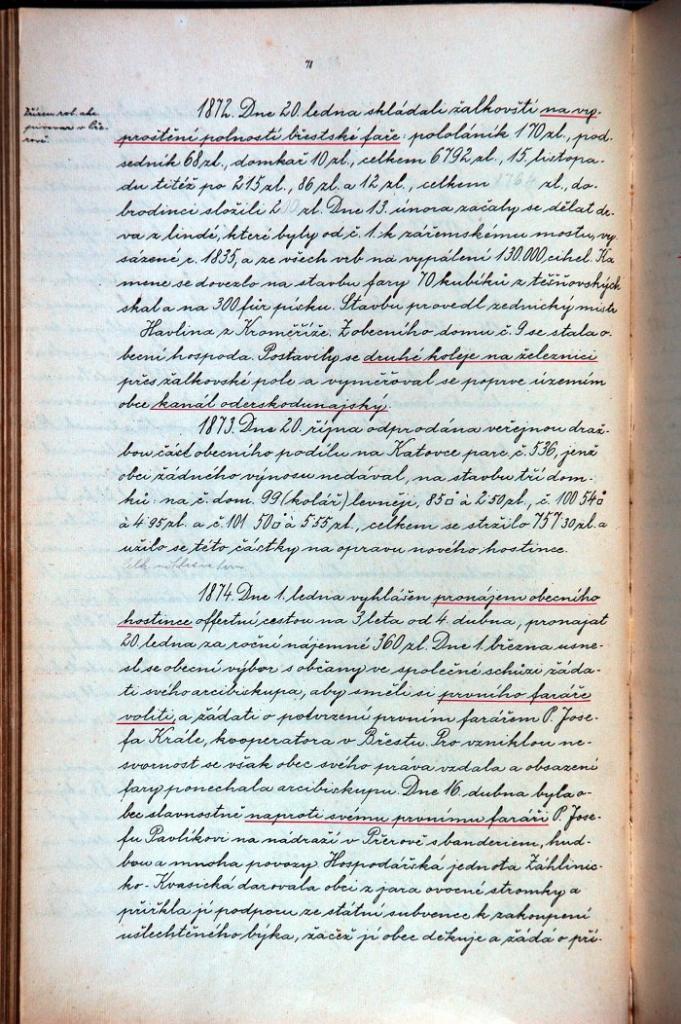 71
1872. Dne 20. ledna skládali žalkovští na vy-
proštění polností břestské faře: pololáník 170 zl., pod-
sedník 68 zl., domkař 10 zl., celkem 6792 zl., 15. listopa-
du titéž po 215 zl., 86 zl. a 12 zl., celkem 1764 zl., do-
brodinci složili zl. Dne 13. února začaly se dělat dř-
va z lindé, které byly od č. 1. k zářemskému mostu, vy-
sázené r. 1835, a ze všech vrb na vypálení 130.000 cihel. Ka-
mene se dovezlo na stavbu fary 70 kubíků z těšňovských
skal a na 300 fůr písku. Stavbu provedl zednický mistr
Havlina z Kroměříže. Z obecního domu č. 9 se stala o-
becní hospoda. Postavily se druhé koleje na železnici
přes žalkovské pole a vyměřoval se poprve územím
obce kanál oderskodunajský.
1873. Dne 20. října odprodána veřejnou draž-
bou část obecního podílu na Katovce parc. č. 536, jenž
obci žádného výnosu nedával, na stavbu tří dom-
ků: na č. dom. 99 (kolář) levněji, 85□ à 2·50 zl., č. 100 54□
à 4·95 zl. a č. 101 50□ à 5·55 zl., celkem se stržilo 757·30 zl. a
užilo se této částky na opravu nového hostince.
1874. Dne 1. ledna vyhlášen pronájem obecního
hostince offertní cestou na 3 leta od 4. dubna, pronajat
20. ledna za roční nájemné 360 zl. Dne 1. března usne-
sl se obecní výbor s občany ve společné schůzi žáda-
ti svého arcibiskupa, aby směli si prvního faráře
voliti, a žádati o potvrzení prvním farářem P. Jose-
fa Krále, kooperatora v Břestu. Pro vzniklou ne-
svornost se však obec svého práva vzdala a obsazení
fary ponechala arcibiskupu. Dne 16. dubna byla o-
bec slavnostně naproti svému prvnímu faráři P. Jose-
fu Pavlíkovi na nádraží v Přerově s banderiem, hud-
bou a mnoha povozy. Hospodářská jednota Záhlinic-
ko-Kvasická darovala obci z jara ovocné stromky a
přiřkla jí podporu ze státní subvence k zakoupení
ušlechtěného býka, začež jí obec děkuje a žádá o při-